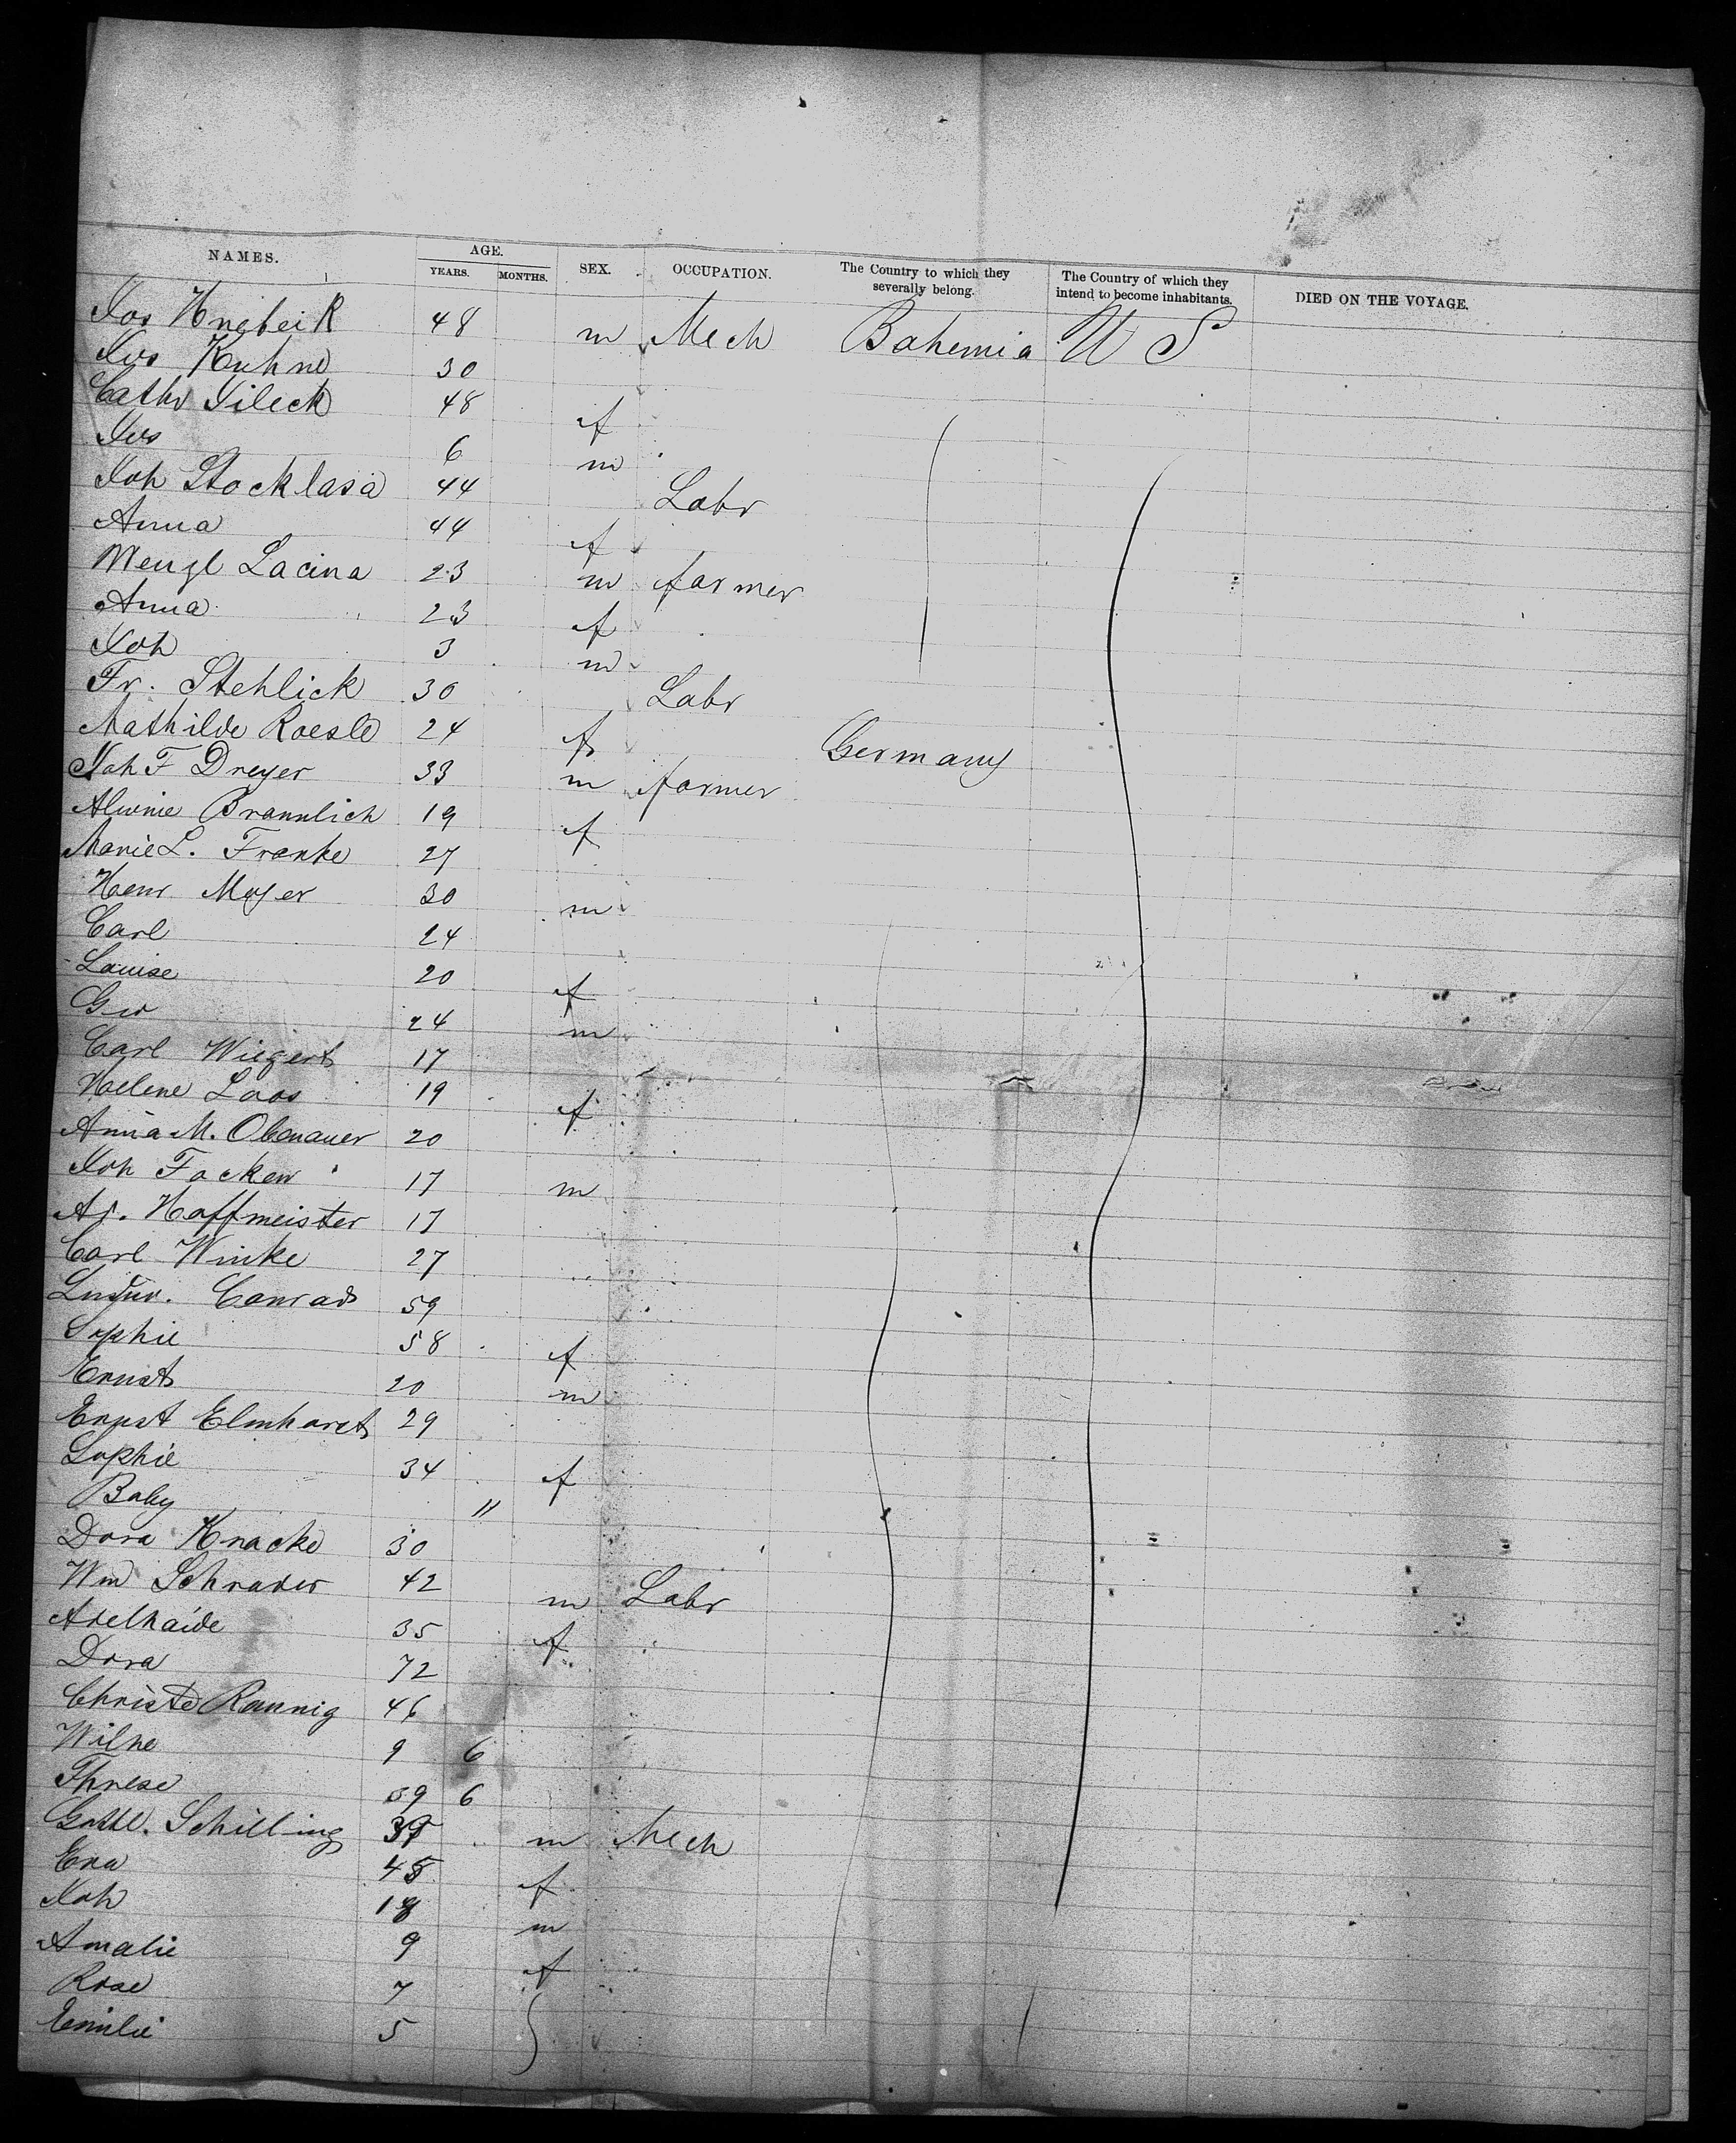 NAMES. AGE. YEARS. MONTHS. SEX. OCCUPATION. The Country to which they severally belong. The Country of which they intend to become inhabitants. DIED ON THE VOYAGE.
Jos 48 m Mech Bohemia U S
Jos Kuhne 30
Cathr Jileck 48 f
Jos 6 m
Joh Stocklasa 44 Labr
Anna 44 f
Wenzl Lacina 23 m farmer
Anna 23 f
Joh 3 m
Fr. Stehlick 30 Labr
Mathilde Roesle 24 f Germany
Joh F Dreyer 33 m farmer
Alwine Braunlich 19 f
Marie L. Franke 27
Henr Meyer 30 m
Carl 24
Louise 20 f
Geo 24 m
Carl Wiegert 17
Helene Loos 19 f
Anna M. Obenauer 20
Joh Focken 17 m
Hoffmeister 17
Carl Winke 27
Ludw. Conrad 59
Sophie 58 f
Ernst 20 m
Ernst Elmhorst 29
Sophie 34 f
Baby 11
Dora Knacke 30
Wm Schrader 42 m Labr
Adelhaide 35 f
Dora 72
Christe Rannig 46
Wilne 9 6
Threse 59 6
Gottl. Schilling m Mech
Eva 45 f
Joh m
Amalie 9 f
Rose 7
Emilie 5